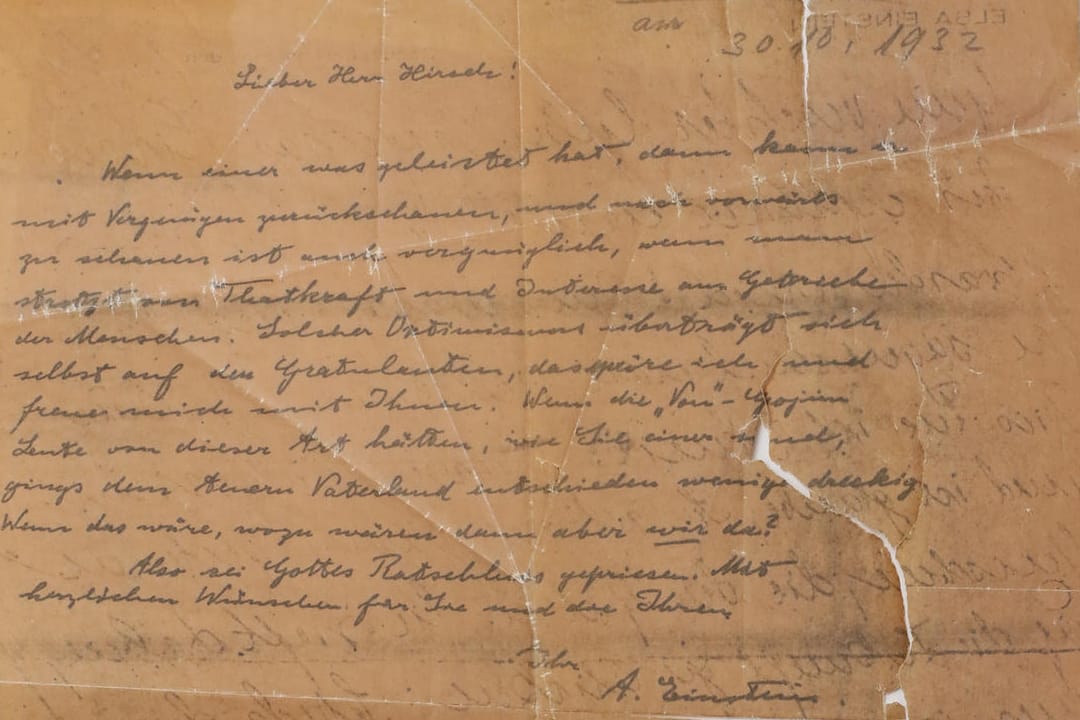 am
30.10.1932
Lieber Herr Hirsch!
Wenn einer was geleistet hat, dann kann er
mit Vergnügen zurückschauen, und nach vorwärts
zu schauen ist auch vergnüglich, wenn man
strotzt von Thatkraft und Interesse am Getriebe
der Menschen. Solcher Optimismus überträgt sich
selbst auf den Gratulanten, das spüre ich und
freue mich mit Ihnen. Wenn die „Von"-Gojim
Leute von dieser Art hätten, wie Sie einer sind,
gings dem teuern Vaterland entschieden weniger dreckig
Wenn das wäre, wozu wären dann aber wir da?
Also sei Gottes Ratschluss gepriesen. Mit
herzlichen Wünschen für Sie und die Ihren
Ihr
A. Einstein.
ELSA EINSTEIN